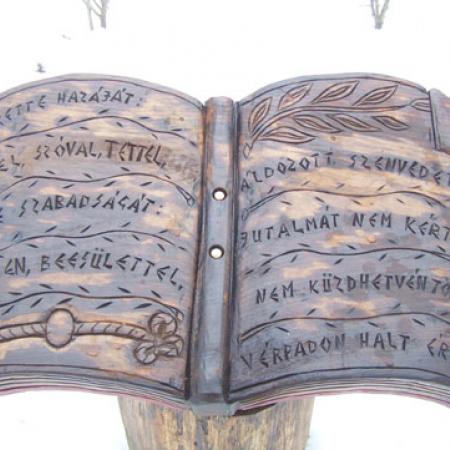 ETTE HAZÁJÁT:
EL, SZÓVAL, TETTEL,
SZABADSÁGÁT:
TEN, BEESÜLETTEL,
ÁLDOZOTT, SZENVEDET
JUTALMÁT NEM KÉRT
NEM KÜZDHETVÉN TO
VÉRPADON HALT ÉR